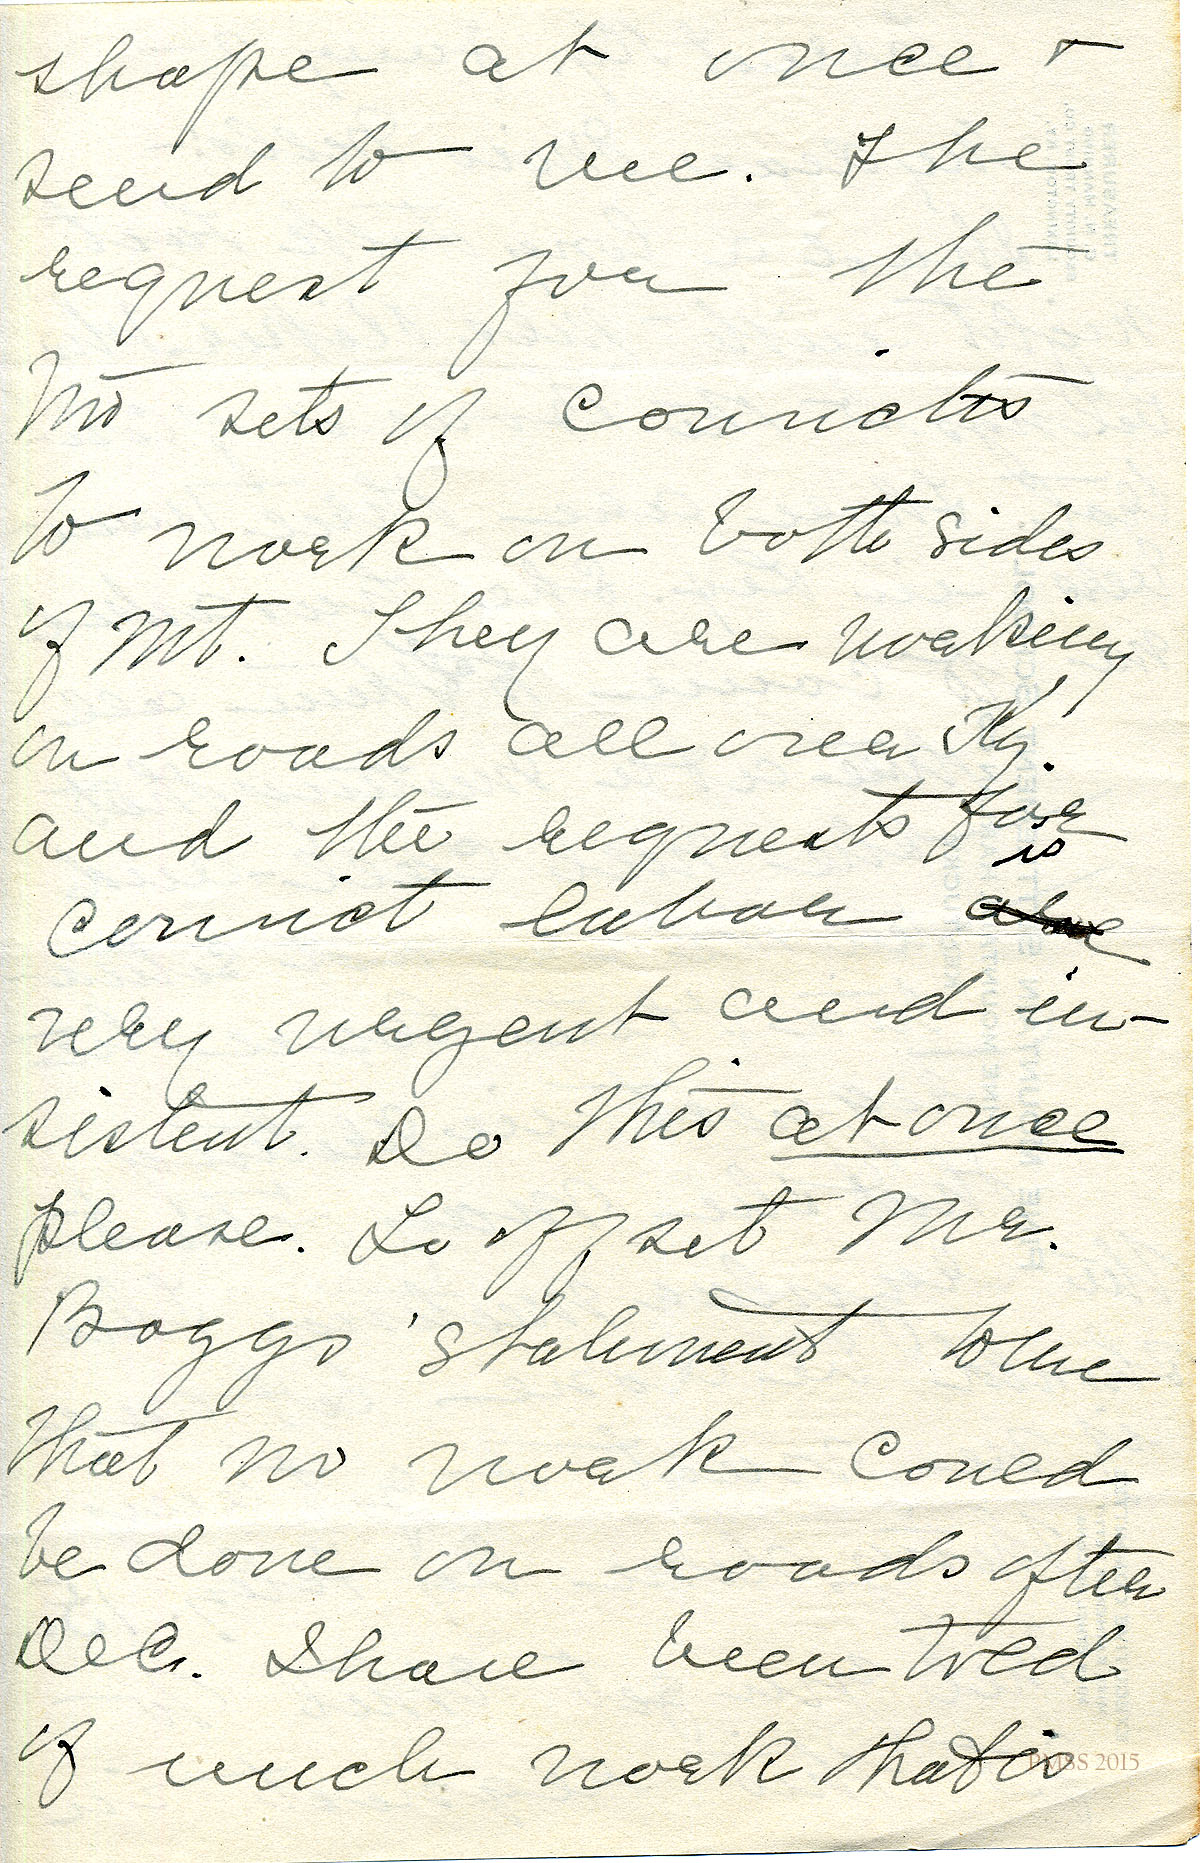 shape at once +
send to me. The
request for the
two sets of convicts
to work on both sides
of Mt. They are working
on roads all over Ky.
and the requests for
is
convict labor are
very urgent and in-
sistent. Do this at once
please. To offset Mr.
Boggs' statement to me
that no work could
be done on roads after
Dec. I have been told
of much work that is
PMSS 2015